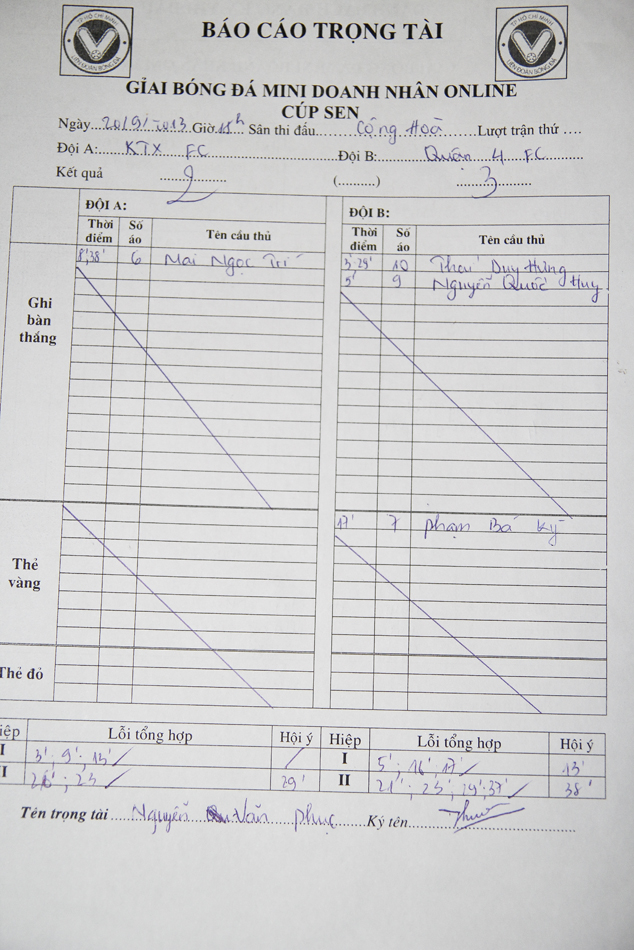 TP HỒ CHÍ MINH
LIÊN ĐOÀN BÓNG ĐÁ
BÁO CÁO TRỌNG TÀI
TP HỒ CHÍ MINH
LIÊN ĐOÀN BÓNG ĐÁ
GIẢI BÓNG ĐÁ MINI DOANH NHÂN ONLINE
CÚP SEN
Ngày 20/9/2013 Giờ 18h Sân thi đấu Cộng Hoà Lượt trận thứ ....
Đội A: KTX FC Đội B: Quận 4 FC
Kết quả 2 (..........) 3
ĐỘI A: ĐỘI B:
Thời điểm Số áo Tên cầu thủ Thời điểm Số áo Tên cầu thủ
Ghi bàn thắng
8',38' 6 Mai Ngọc Trí 3' 25' 10 Thái Duy Hưng
5' 9 Nguyễn Quốc Huy
Thẻ vàng
17' 7 Phạm Bá Kỳ
Thẻ đỏ
iệp Lỗi tổng hợp Hội ý Hiệp Lỗi tổng hợp Hội ý
I 3'; 9'; 15' I 5'; 16'; 17' 13'
II 23 29' II 21'; 23'; 29' 37' 38'
Tên trọng tài Nguyễn Văn Phục Ký tên